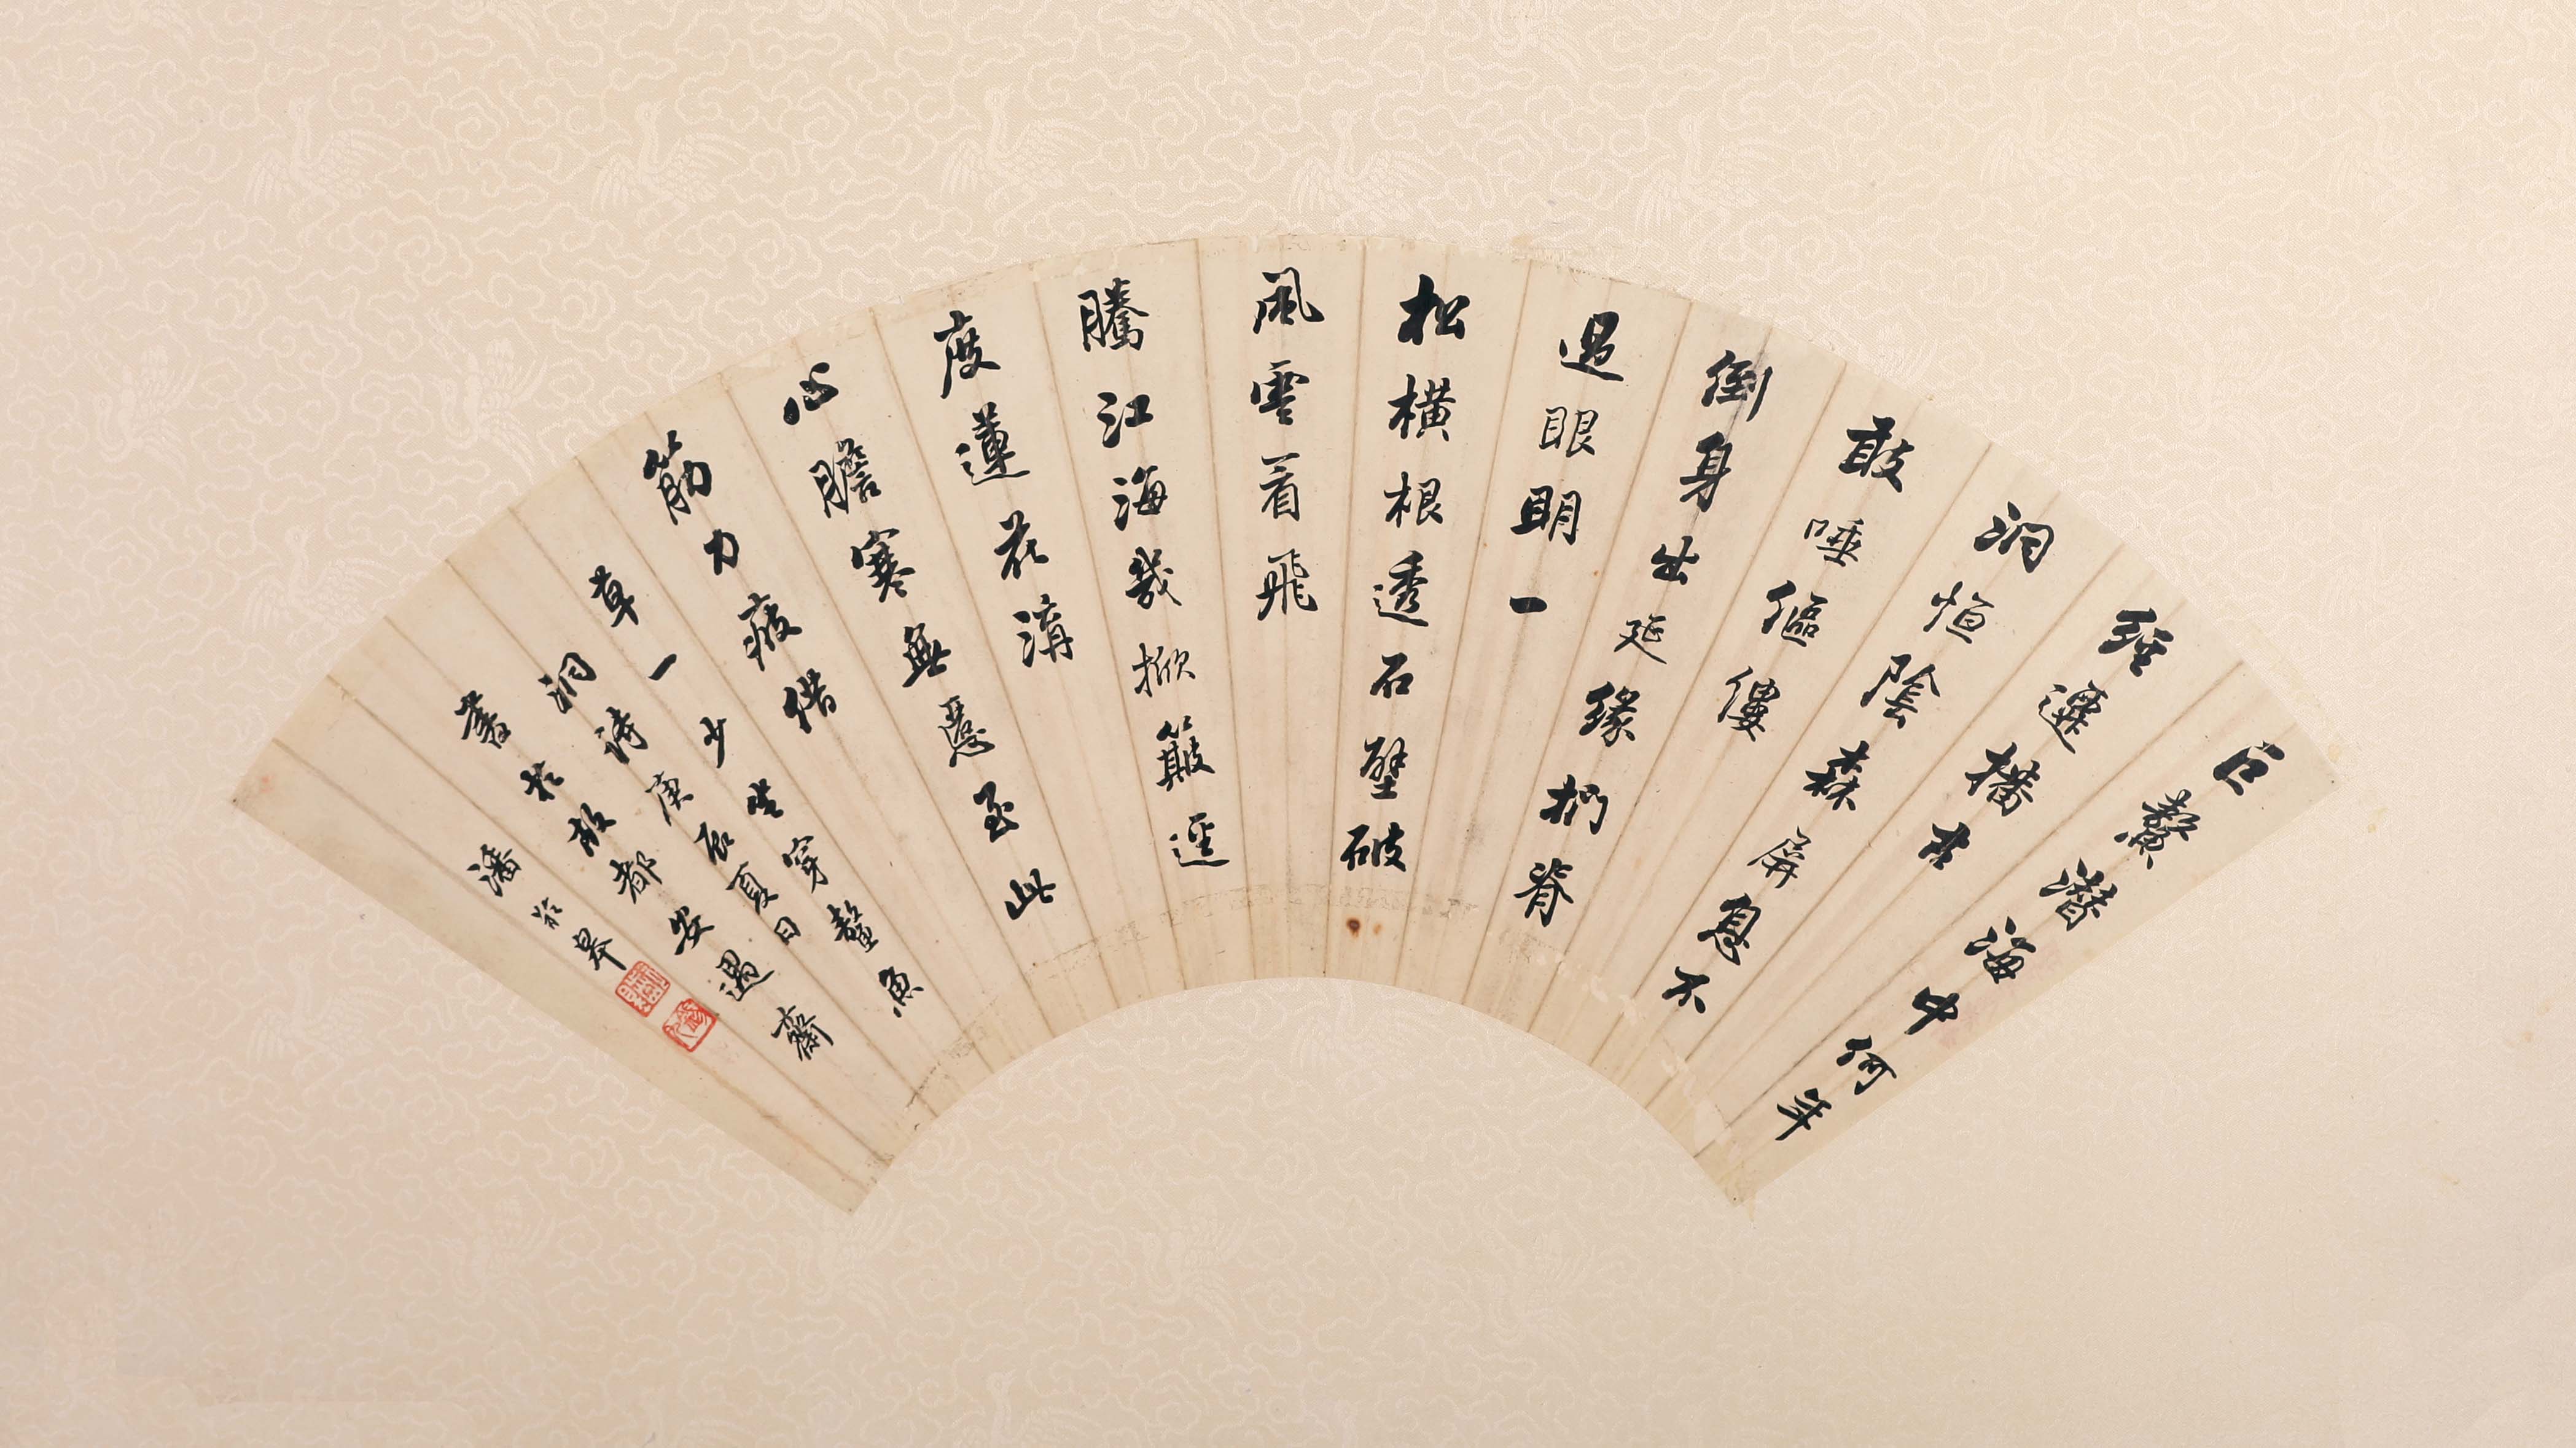 巨鰲潛海中何年
經遷播古
洞恒陰森屏息不
敢唾傴僂
倒身出延緣捫脊
過眼明一
松橫根透石壁破
風雲着飛
騰江海幾掀簸逕
度蓮花溝
心膽寒無至此
筋力疲借
草一少坐穿鼇魚
洞詩庚辰夏日
書於故都安遇齋
潘齡皋